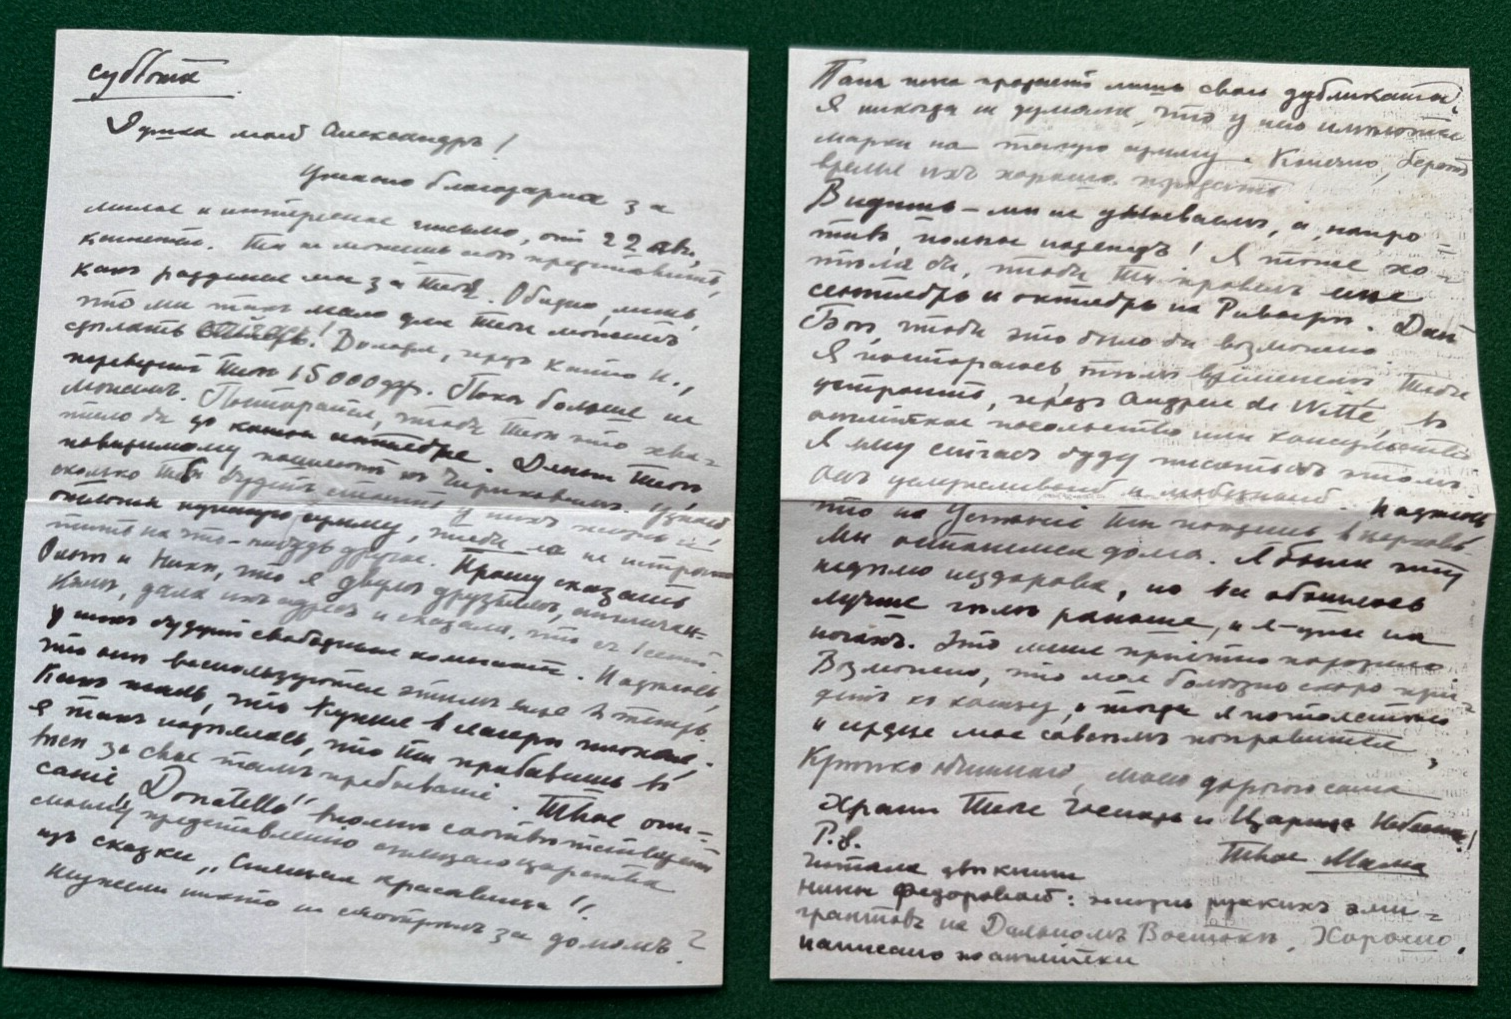 суббота
Душка мой Александръ!
Ужасно благодарна за
милое и интересное письмо, отъ 22 авг.,
Ты не можешь себѣ представить,
какъ рады мы за Тебя. Обидно лишь,
что мы такъ мало для Тебя можемъ
сдѣлать теперь! Володя, черезъ
переведетъ Тебѣ 15000 фр. Пока больше не
можемъ. Постарайся, чтобы Тебѣ это хва=
тило бы до конца сентября. Деньги Тебѣ
повидимому пошлютъ къ Чириковымъ. Узнай
сколько Тебѣ будетъ стоить у нихъ жизнь и
отложи нужную сумму, чтобы ея не истра=
тить на что-нибудь другое. Прошу сказать
и Ники, что я двумъ друзьямъ, англичан=
камъ, дала ихъ адресъ и сказала, что съ
у нихъ будутъ свободные комнаты. Надѣюсь,
что онѣ воспользуются этимъ еще
Какъ жаль, что кухня в лагерѣ плохая.
я такъ надѣялась, что Ты прибавишь въ
вѣсѣ за свое тамъ пребываніе. Твое опи=
саніе „Donatello" вполнѣ соотвѣтствуетъ
моему представленію спящаго царства
изъ сказки „Спящая красавица"!
Неужели никто не смотритъ за домомъ?
Папа пока продаетъ лишь свои дубликаты.
Я никогда не думала, что у него имѣются
марки на такую сумму. Конечно, беретъ
время ихъ хорошо продать!
Видишь – мы не унываемъ, а, напро=
тивъ, полны надеждъ! Я тоже хо=
тѣла бы, чтобы Ты провелъ еще
сентябрь и октябрь на Ривьерѣ. Дай
Богъ, чтобы это было бы возможно.
Я постараюсь тѣмъ временемъ Тебя
устроить, черезъ Андрея de Witte, въ
англійское посольство или консульство.
Я ему сейчасъ буду писать объ этомъ.
Онъ услужливый и любезный. Надѣюсь
что на Успеніе Ты пойдешь в церковь.
Мы остались дома. Я была эту
недѣлю нездорова, но все обошлось
лучше чѣмъ раньше, и я уже на
ногахъ. Это меня пріятно поразило
Возможно, что моя болѣзнь скоро при=
детъ къ концу, и тогда я потолстѣю
и сердце мое совсѣмъ поправится.
Крѣпко обнимаю, моего дорогого сына
Храни Тебя Господь и Царица Небесная!
Твоя Мама
P.S.
Читала двѣ книги
Нины Федоровой: жизнь русскихъ эми=
грантовъ на Дальнемъ Востокѣ. Хорошо
написано по англійски